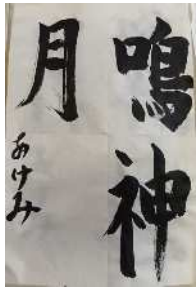 鳴神
月
あけみ